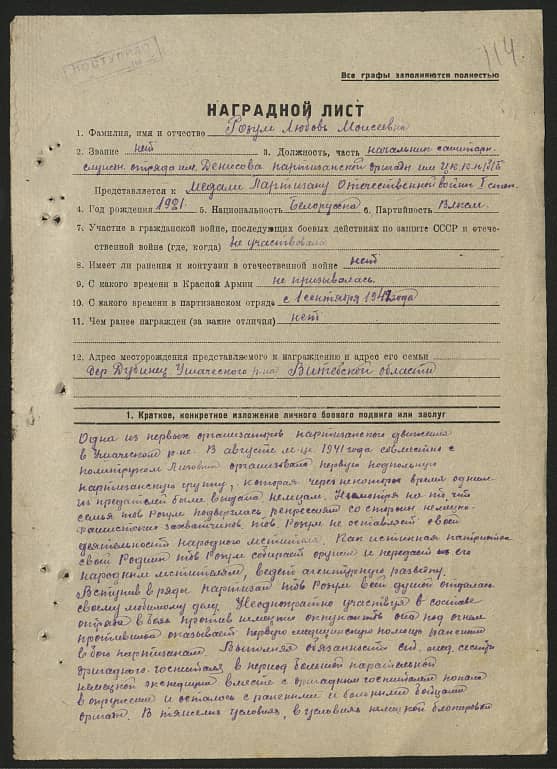 ПОСТУПИЛО
114.
Все графы заполняются полностью
НАГРАДНОЙ ЛИСТ
1. Фамилия, имя и отчество Розум Любовь Моисеевна
2. Звание нет 3. Должность, часть начальник санитарн.
служб. отряда им. Денисова партизанской бригады им ЦК КП(б)Б
Представляется к Медали Партизану Отечественной войны I степ.
4. Год рождения 1921. 5. Национальность Белорусска 6. Партийность Влксм.
7. Участие в гражданской войне, последующих боевых действиях по защите СССР и отече-
ственной войне (где, когда) не участвовала
8. Имеет ли ранения и контузии в отечественной войне нет
9. С какого времени в Красной Армии не призывалась.
10. С какого времени в партизанском отряде с 1 сентября 1942 года
11. Чем ранее награжден (за какие отличия) нет
12. Адрес месторождения представляемого к награждению и адрес его семьи
дер. Дубинец Ушачского р-на Витебской области
1. Краткое, конкретное изложение личного боевого подвига или заслуг
Одна из первых организаторов партизанского движения
в Ушачском р-не. В августе м-це 1941 года совместно с
политруком организовала первую подпольную
партизанскую группу, которая через некоторое время одним
из предателей была выдана немцам. Несмотря на то, что
семья тов Розум подверглась репрессиям со стороны немецко-
фашистских захватчиков тов Розум не оставляет своей
деятельности народного мстителя. Как истинная патриотка
своей Родины тов Розум собирает оружие и передает его
народным мстителям, ведет агентурную разведку.
Вступив в ряды партизан тов Розум всей душой отдалась
своему любимому делу. Неоднократно участвуя в составе
отряда в боях против немецких оккупантов она под огнем
противника оказывает первую медицинскую помощь раненым
в бою партизанам. Выполняя обязанности мед. сестры
бригадного госпиталя в период большой карательной
немецкой экспедиции вместе с бригадным госпиталем попала
в окружение и осталась с ранеными и больными бойцами
бригады. В тяжелых условиях, в условиях немецкой блокировки